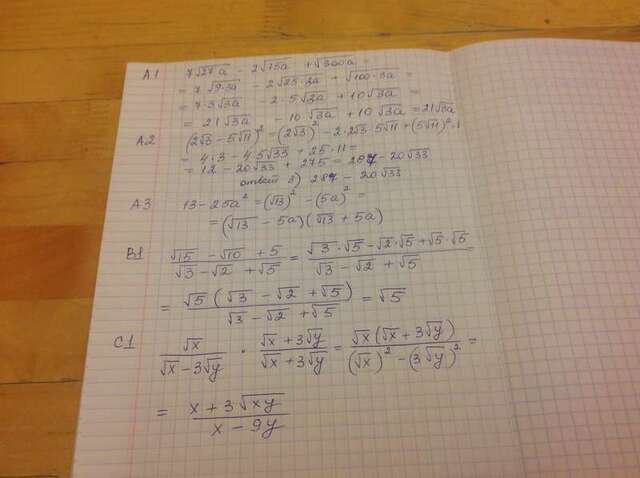 A1 7√27a - 2√75a + √300a =
= 7√9·3a - 2√25·3a + √100·3a =
= 7·3√3a - 2·5√3a + 10√3a =
= 21√3a - 10√3a + 10√3a = 21√3a
A2 (2√3 - 5√11)² = (2√3)² - 2·2√3·5√11 + (5√11)² =
= 4·3 - 4·5√33 + 25·11 =
= 12 - 20√33 + 275 = 287 - 20√33
ответ 3) 287 - 20√33
A3 13 - 25a² = (√13)² - (5a)² =
= (√13 - 5a)(√13 + 5a)
B1 (√15 - √10 + 5)/(√3 - √2 + √5) = (√3·√5 - √2·√5 + √5·√5)/(√3 - √2 + √5) =
= √5(√3 - √2 + √5)/(√3 - √2 + √5) = √5
C1 √x/(√x - 3√y) · (√x + 3√y)/(√x + 3√y) = √x(√x + 3√y)/((√x)² - (3√y)²) =
= (x + 3√xy)/(x - 9y)